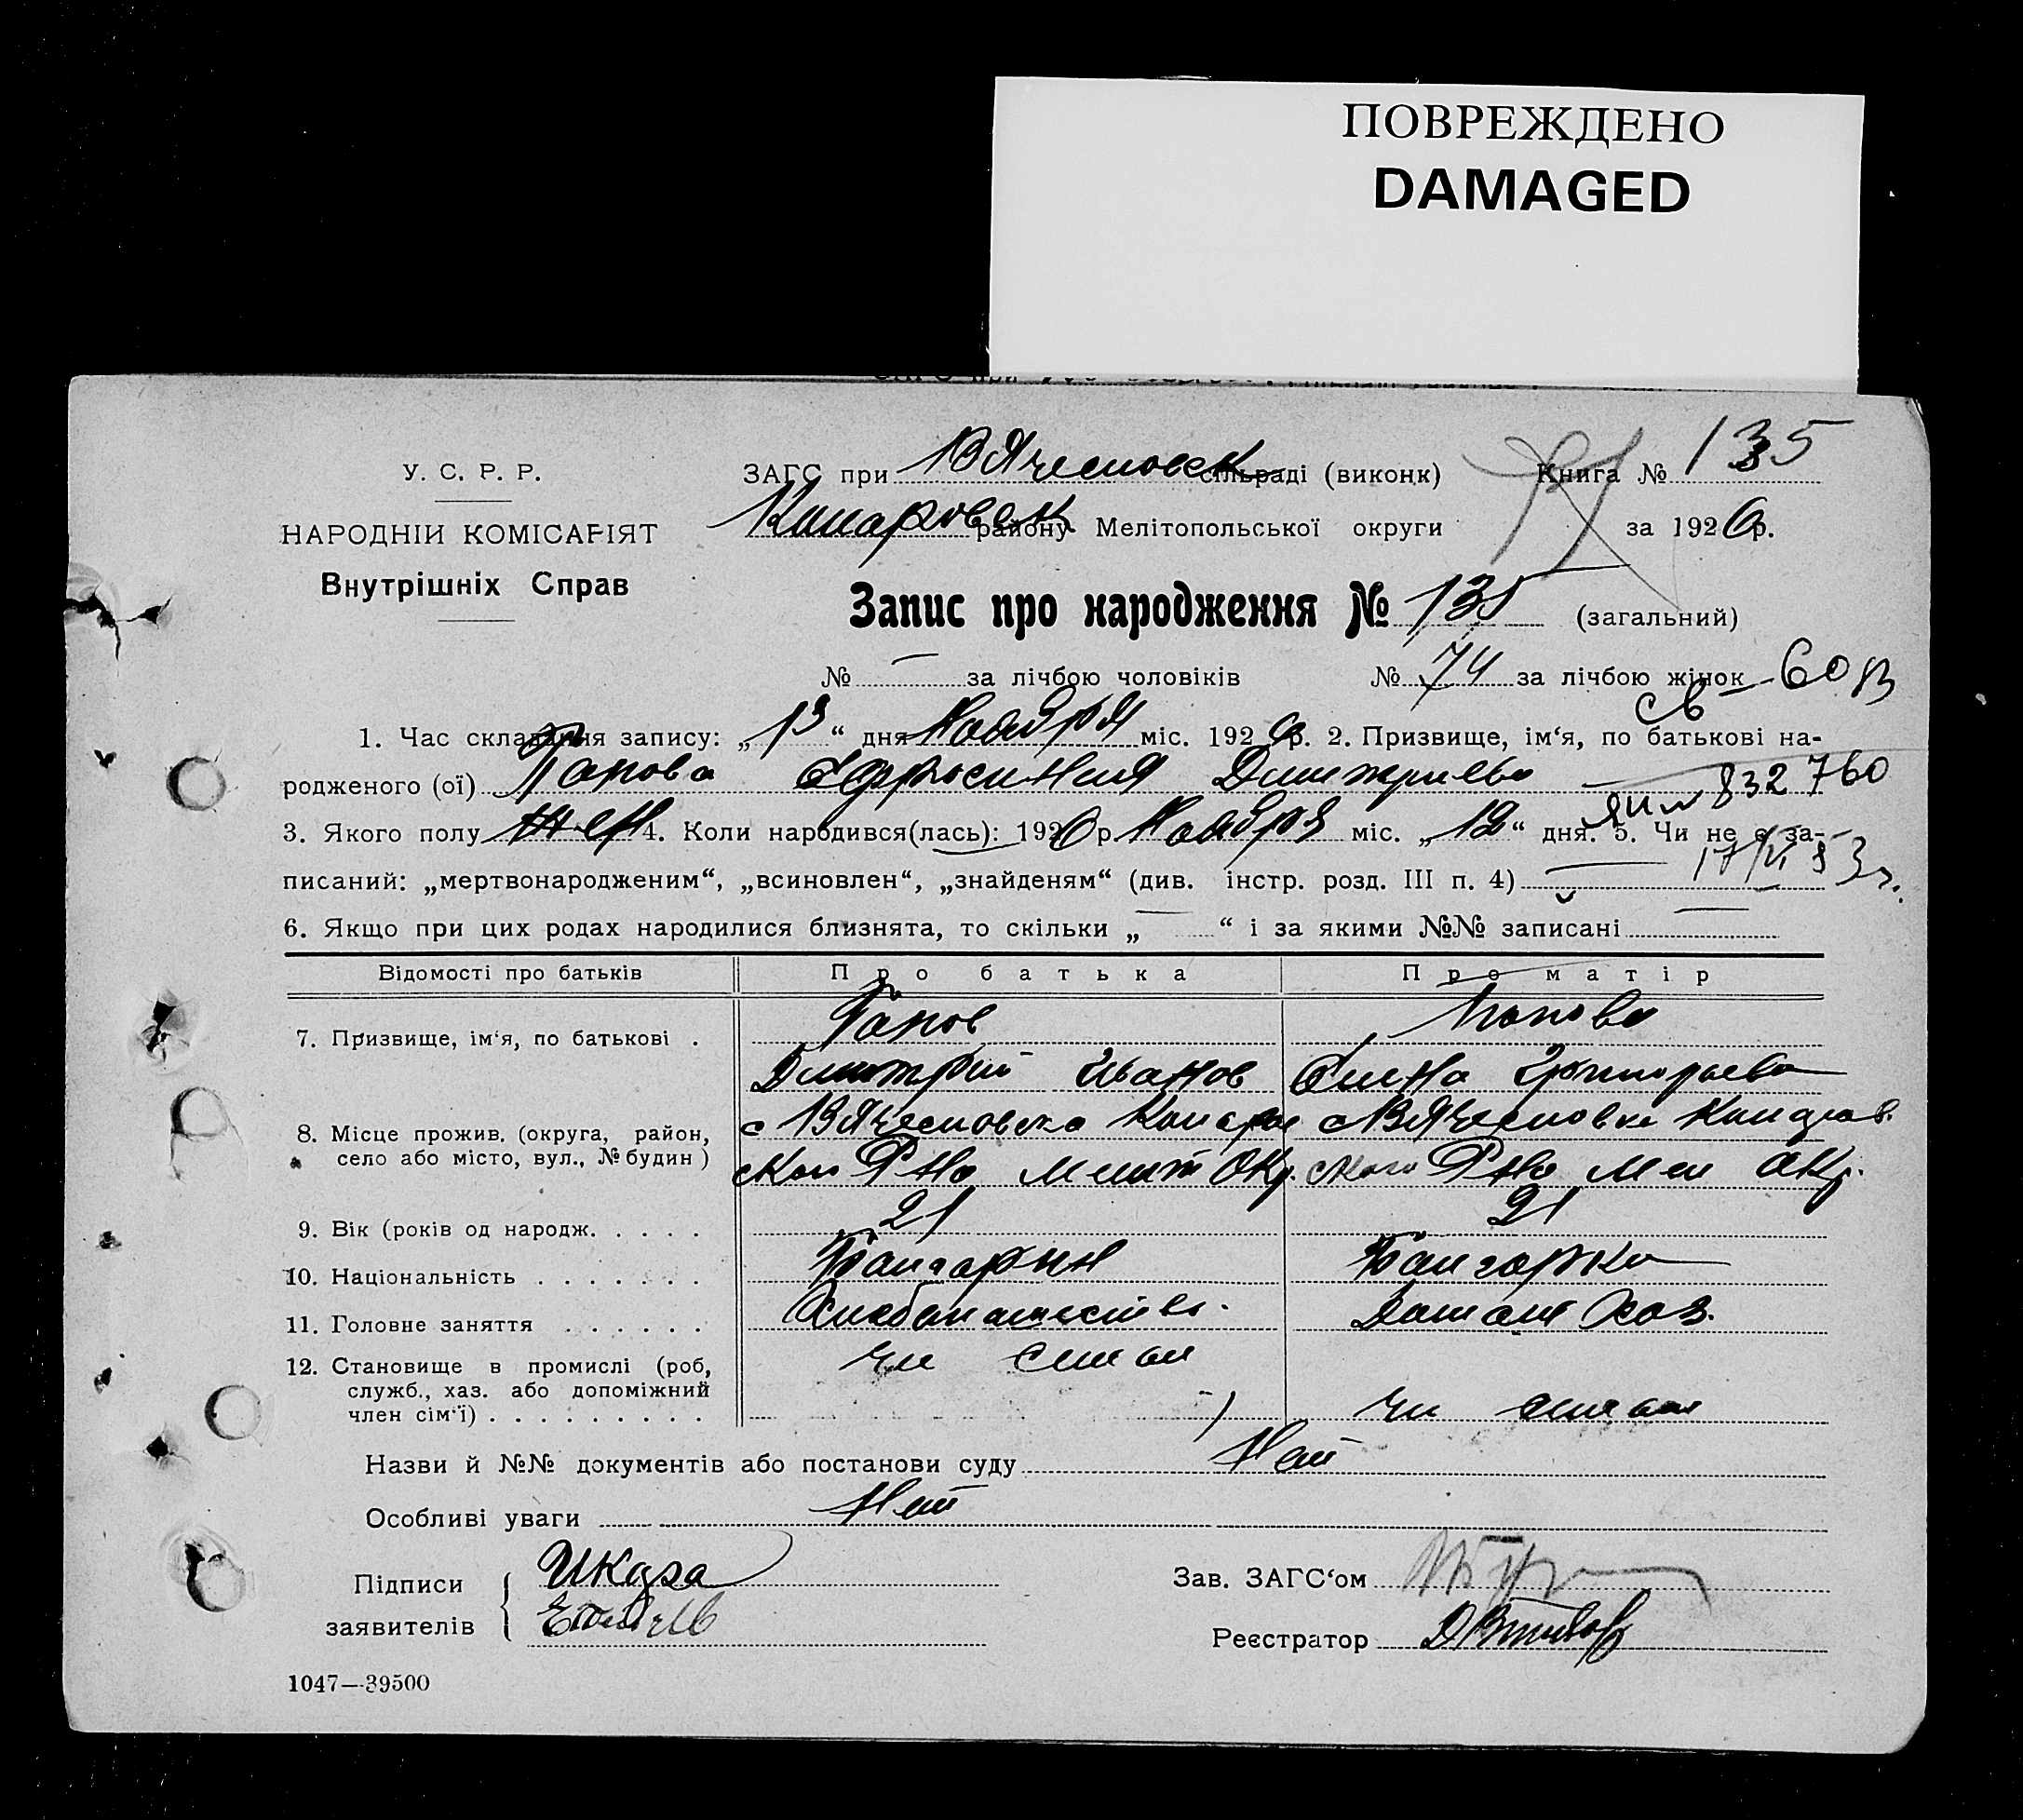 ПОВРЕЖДЕНО
DAMAGED
У. С. Р. Р.
НАРОДНІЙ КОМІСАРІЯТ
Внутрішніх Справ
ЗАГС при ВЯчеславск сільраді (виконк) Книга № 135
району Мелітопольської округи за 1926 р.
Запис про народження № 135 (загальний)
№ — за лічбою чоловіків № 74 за лічбою жінок
1. Час складання запису: „13“ дня Ноября міс. 1926 р. 2. Призвище, ім‘я, по батькові на-
родженого (ої) Ефросиния Дмитриева
832760
3. Якого полу жен 4. Коли народився(лась): 1926 р. Ноября міс. „12“ дня. 5. Чи не є за-
писаний: „мертвонародженим“, „всиновлен“, „знайденям“ (див. інстр. розд. III п. 4) —
17/VI 53 г.
6. Якщо при цих родах народилися близнята, то скільки „—“ і за якими №№ записані —
Відомості про батьків Про батька Про матір
7. Призвище, ім‘я, по батькові .
Дмитрий Иванов Елена Григорьева
8. Місце прожив. (округа, район,
село або місто, вул., № будин)
Р-на Мелит Окр. ского Р-на Мел Окр.
9. Вік (років од народж. . . . . 21 21
10. Національність . . . . . . . Болгарин Болгарка
11. Головне заняття . . . . . . Хлебопашество. Домаш Хоз.
12. Становище в промислі (роб,
служб., хаз. або допоміжний
член сім‘ї) . . . . . . . . .
чл семьи чл семьи
Назви й №№ документів або постанови суду Нет
Особливі уваги Нет
Підписи
заявителів
Зав. ЗАГС‘ом
Реєстратор
1047—39500